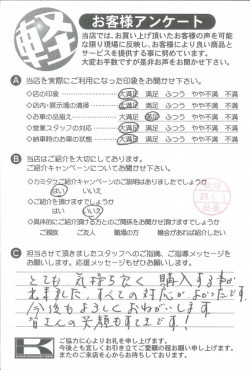 軽
お客様アンケート
当店では、お買い上げ頂いたお客様の声を可能
な限り現場に反映し、お客様により良い商品と
サービスを提供する事に努めています。
大変お手数ですが是非お声をお聞かせ下さい。
A 当店を実際にご利用になった印象をお聞かせ下さい。
◇店の印象 大満足 満足 ふつう やや不満 不満
◇店内・展示場の清掃 大満足 満足 ふつう やや不満 不満
◇お車の品揃え 大満足 満足 ふつう やや不満 不満
◇営業スタッフの対応 大満足 満足 ふつう やや不満 不満
◇納車時のお車の状態 大満足 満足 ふつう やや不満 不満
B 当店はご紹介を大切にしております。
ご紹介キャンペーンについてお聞かせ下さい。
◇カミタケご紹介キャンペーンのご説明はありましたでしょうか
はい いいえ
◇ご紹介を頂けますでしょうか
はい いいえ
◇具体的にご紹介頂ける方とのご関係をお聞かせ頂けますでしょうか
ご親族 ご友人 職場の方 機会があれば紹介したい
C 担当させて頂きましたスタッフへのご指摘、ご指導メッセージを
お願いします。応援メッセージもぜひお願いします。
とても 気持ちたく 購入する事が
出来ました。すべての対応がよかったです。
今後もよろしくおねがいします
皆さんの笑顔もすてきです!
K
ご協力に心よりお礼を申し上げます。
今後とも宜しくお引き立てご愛顧の程お願い申し上げます。
またのご来店を心からお待ちしております。